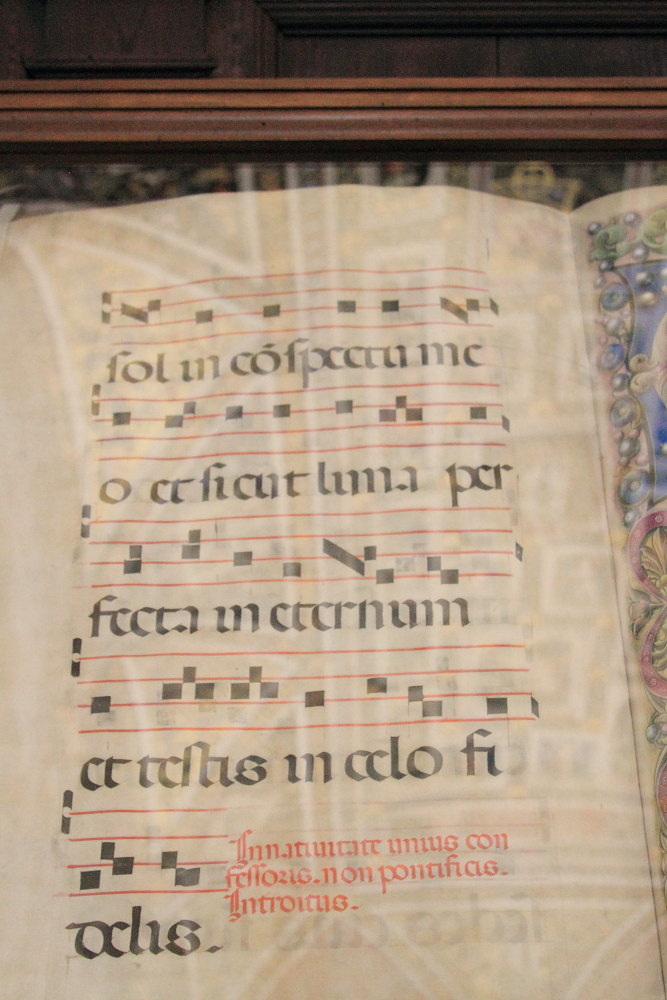 sol in cōspectu me
o et sicut luna per
fecta in eternum
et testis in celo fi
delis.
In natiuitate unius con
fessoris. non pontificis.
Introitus.